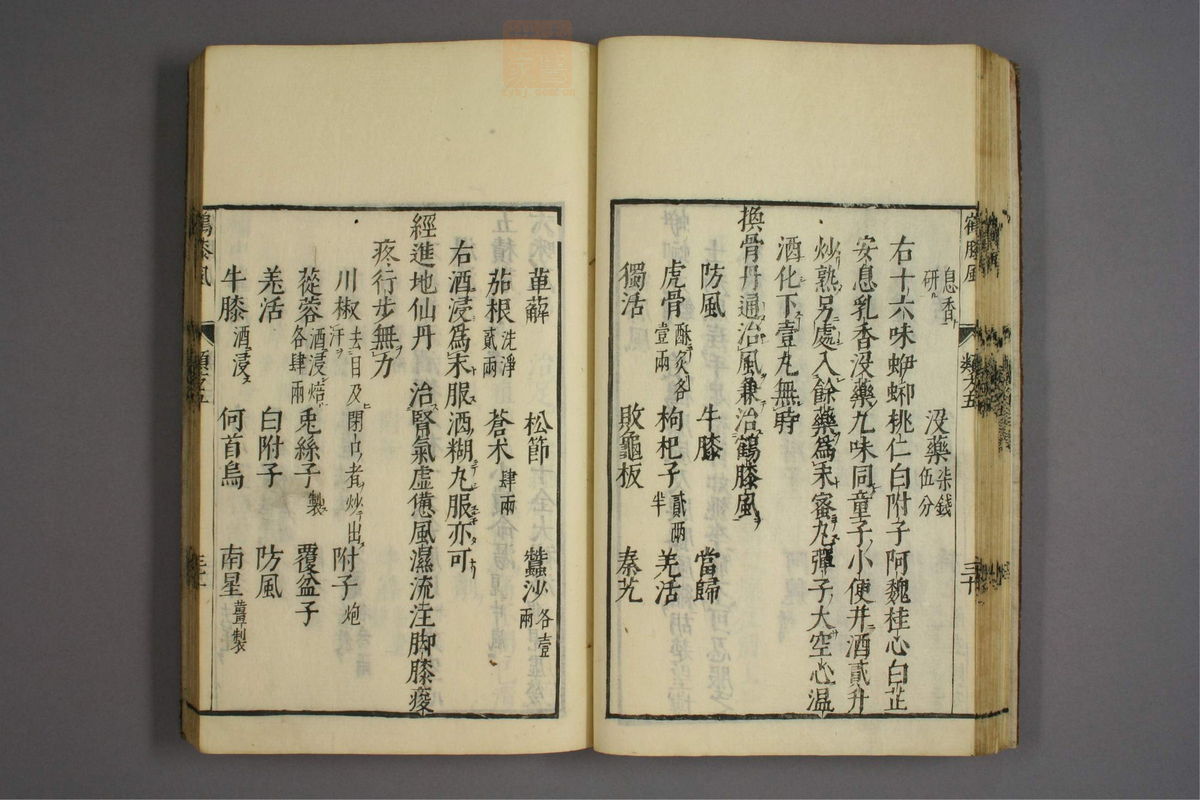 息香研 没藥柒錢伍分
右十六味蚵蚾桃仁白附子阿魏桂心白芷
安息乳香没藥九味同童子小便并酒貳升
炒熟另處入餘藥為末蜜丸彈子大空心温
酒化下壹丸無時
換骨丹通治風兼治鶴膝風
防風 牛膝 當歸
虎骨酥炙各壹兩 枸杞子貳兩半 羌活
獨活 敗龜板 秦艽
萆薢 松節 蠶沙各壹兩
茄根洗淨貳兩 蒼朮肆兩
右酒浸為末服酒糊丸服亦可
經進地仙丹 治腎氣虚憊風濕流注脚膝痠
疼行步無力
川椒去目及閉口者炒出汗 附子炮
蓯蓉酒浸焙各肆兩 兎絲子製 覆盆子
羗活 白附子 防風
牛膝酒浸 何首烏 南星薑製
鶴膝風 類五